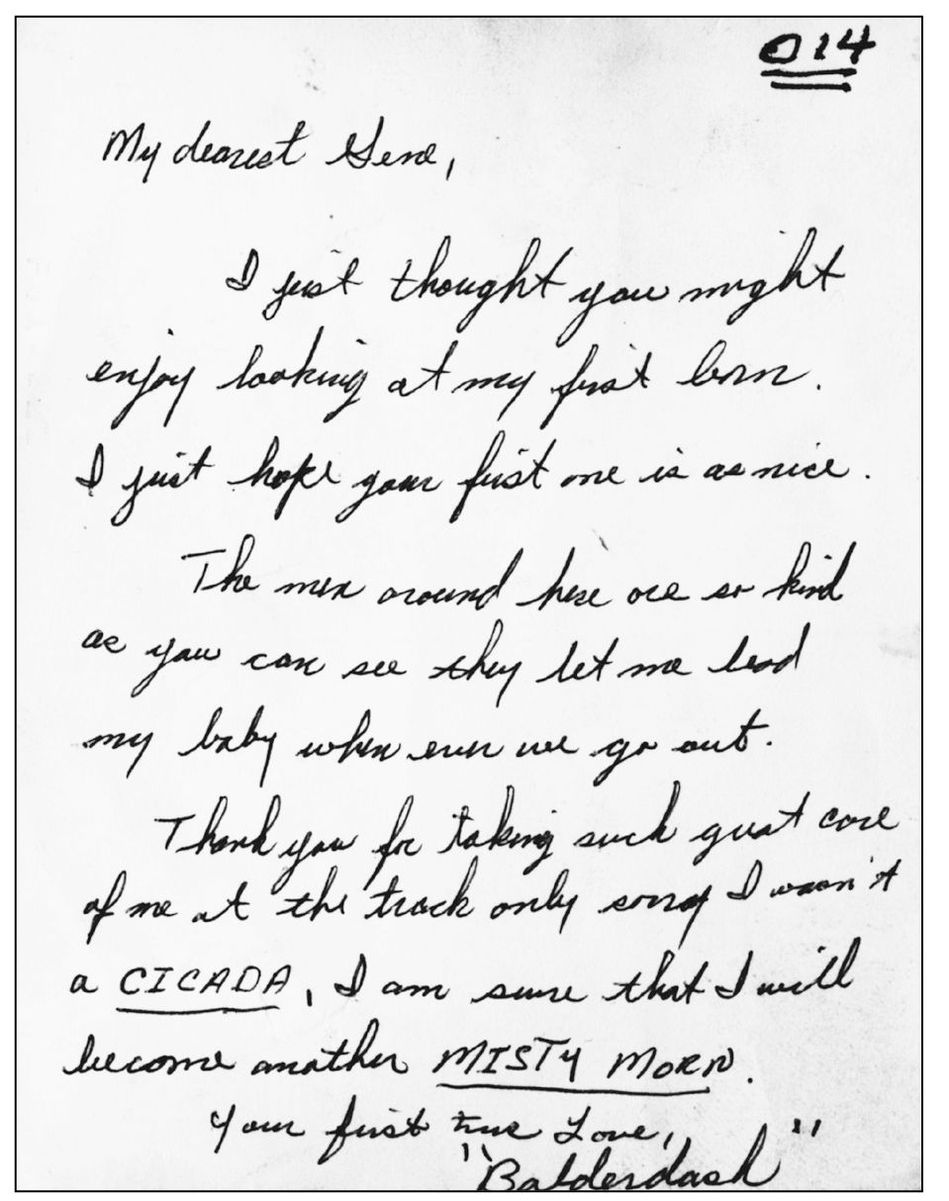 014
My dearest Gene,
I just thought you might
enjoy looking at my first born.
I just hope your first one is as nice.
The men around here are so kind
as you can see they let me lead
my baby when ever we go out.
Thank you for taking such great care
of me at the track only sorry I wasn't
a CICADA, I am sure that I will
become another MISTY MORN.
Your first true Love,
"Balderdash"